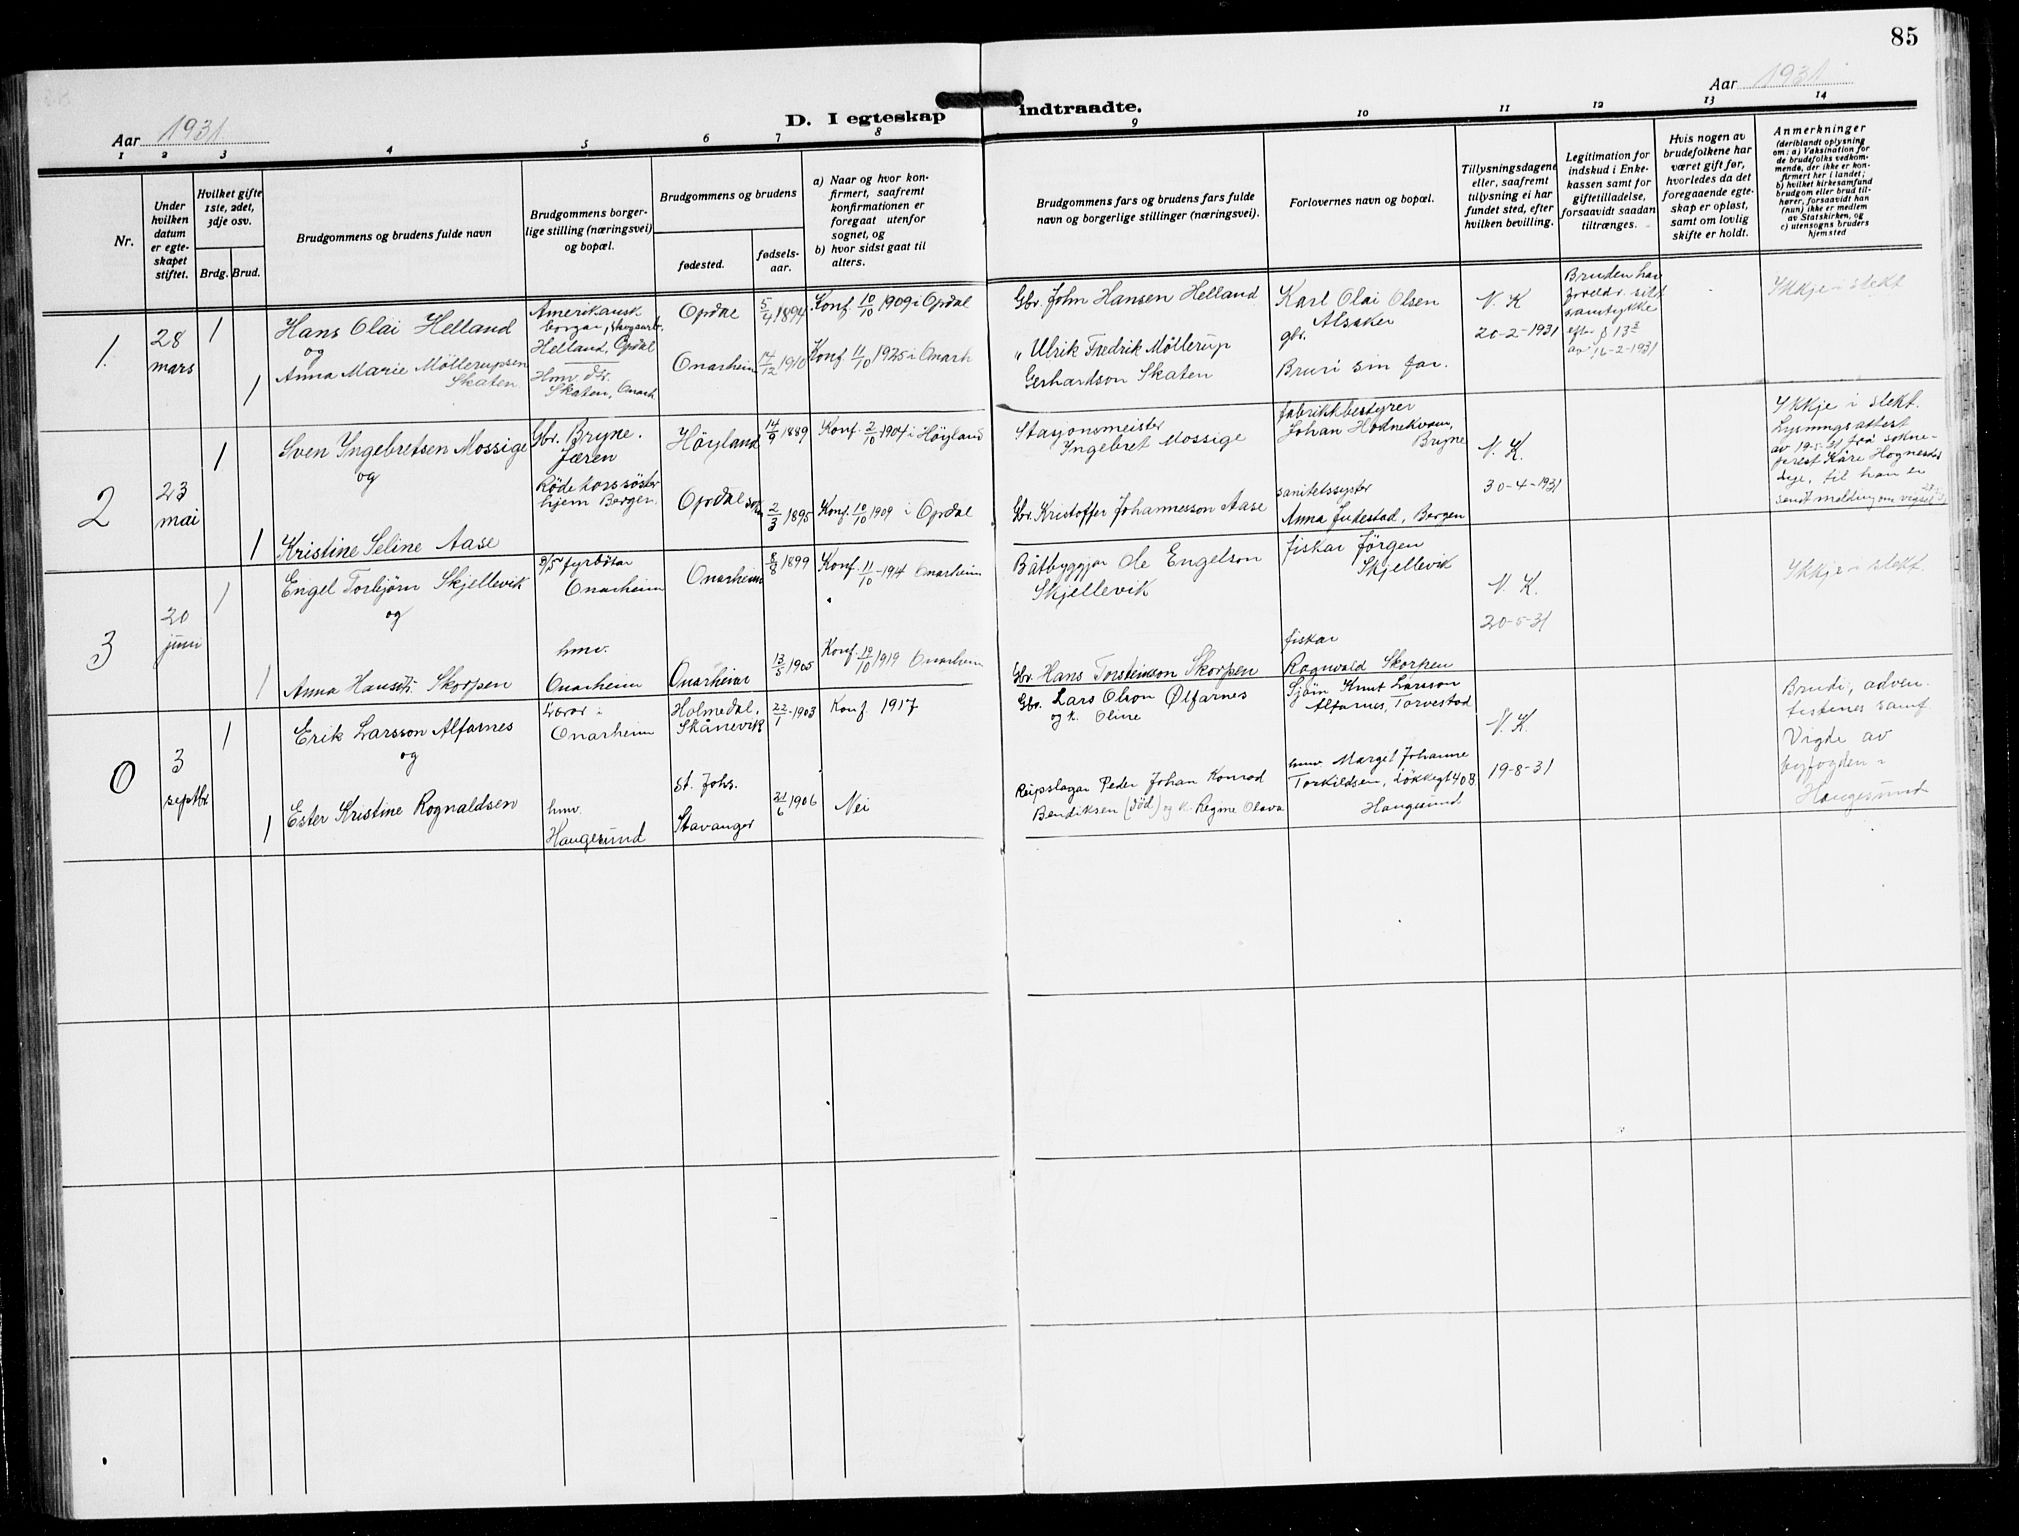 85
Aar 1931
D. I egteskap indtraadte.
Aar 1931
1 2 3 4 5 6 7 8 9 10 11 12 13 14
Nr.
Under
hvilken
datum
er egte-
skapet
stiftet.
Hvilket gifte
1ste, 2det,
3dje osv.
Brdg. Brud.
Brudgommens og brudens fulde navn
Brudgommens borger-
lige stilling (næringsvei)
og bopæl.
Brudgommens og brudens
fødested.
fødsels-
aar.
a) Naar og hvor kon-
firmert, saafremt
konfirmationen er
foregaat utenfor
sognet, og
b) hvor sidst gaat til
alters.
Brudgommens fars og brudens fars fulde
navn og borgerlige stillinger (næringsvei).
Forlovernes navn og bopæl.
Tillysningsdagene
eller, saafremt
tillysning ei har
fundet sted, efter
hvilken bevilling.
Legitimation for
indskud i Enke-
kassen samt for
giftetilladelse,
forsaavidt saadan
tiltrænges.
Hvis nogen av
brudefolkene har
været gift før,
hvorledes da det
foregaaende egte-
skap er opløst,
samt om lovlig
skifte er holdt.
Anmerkninger
(deriblandt oplysning
om: a) Vaksination for
de brudefolks vedkom-
mende, der ikke er kon-
firmert her i landet;
b) hvilket kirkesamfund
brudgom eller brud til-
hører, forsaavidt han
(hun) ikke er medlem
av Statskirken, og
c) utensogns bruders
hjemsted
1.
28
mars
1
1
Hans Olai Helland
og
Anna Marie Möllerupsen
Skaten
Amerikansk
borgar, skogsarb.
Helland, Opdal
Hmv. dtr.
Skaten, Onarh
Opdal
Onarheim
5/4 1894
14/12 1910
Konf. 10/10 1909 i Opdal
Konf. 11/10 1925 i Onarh
Gbr. John Hansen Helland
" Ulrik Fredrik Möllerup
Gerhardson Skaten
Karl Olai Olsen
Alsaker
gbr.
Bruri sin far.
V. K
20-2-1931
Bruden har
foreldr. sitt
samtykke
efter § 13
av 16-2-1931
Ikkje i slekt
2
23
mai
1
1
Sven Ingebretsen Mossige
og
Kristine Seline Aase
Gbr. Bryne.
Jæren
Røde korssöster
hjem Bergen
Höyland
Opdal sokn
14/9 1889
2/3 1895
Konf. 2/10 1904 i Höyland
Konf. 10/10 1909 i Opdal
Stasjonsmeister
Ingebret Mossige
Gbr. Kristoffer Johannesson Aase
fabrikkbestyrer
Johan Hodnekvam,
Bryne
sanitetssyster
Anna Indestad, Bergen
V. K.
30-4-1931
Ikkje i slekt.
Lysningsattest
av 19-5-31 frå sokne-
prest Kåre Hognestad
Lye, til han er
sendt melding om vigsel
3
20
juni
1
1
Engel Torbjörn Skjellevik
og
Anna Hansdtr. Skorpen
D/S fyrbötar
Onarheim
hmv.
Onarheim
Onarheim
Onarheim
8/8 1899
13/5 1905
Konf. 11/10 1914 Onarheim
Konf. 12/10 1919 Onarheim
Båtbyggjar Ole Engelson
Skjellevik
Gbr. Hans Torsteinson Skorpen
fiskar Jörgen
Skjellevik
fiskar
Rognvald Skorpen
V. K.
20-5-31
Ikkje i slekt.
0
3
septbr
1
1
Erik Larsson Alfarnes
og
Ester Kristine Rognaldsen
Lærar i
Onarheim
hmv.
Haugesund
Holmedal,
Skånevik
St. Johs.
Stavanger
22/1 1903
21/6 1906
Konf 1917
Nei
Gbr. Lars Olson Ølfarnes
og k. Oline
Reipslagar Peder Johan Konrad
Bendiksen (död) og k. Regine Olava
Sjöm Knut Larsson
Alfarnes, Torvestad
hmv Margit Johanne
Torkildsen, Lökkegt 40 B
Haugesund
V. K.
19-8-31
Brudi, adven-
tistenes samf.
Vigde av
byfogden i
Haugesund